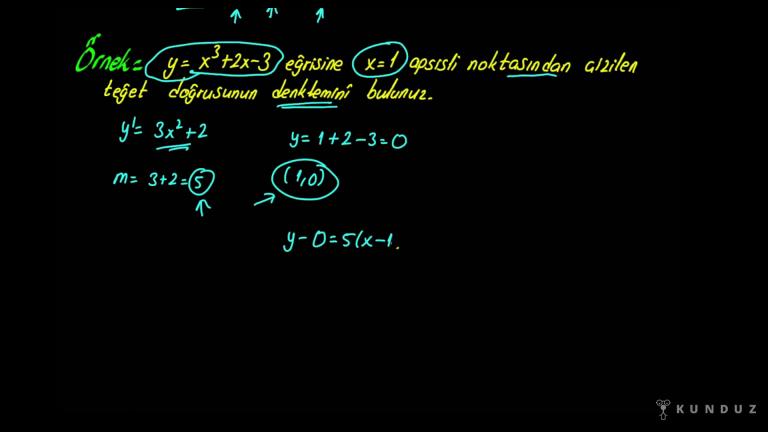 Örnek= y= x³+2x-3 eğrisine x=1 apsisli noktasından çizilen
teğet doğrusunun denklemini bulunuz.
y'= 3x²+2
y=1+2-3=0
m= 3+2=5
(1,0)
y-0=5(x-1
KUNDUZ